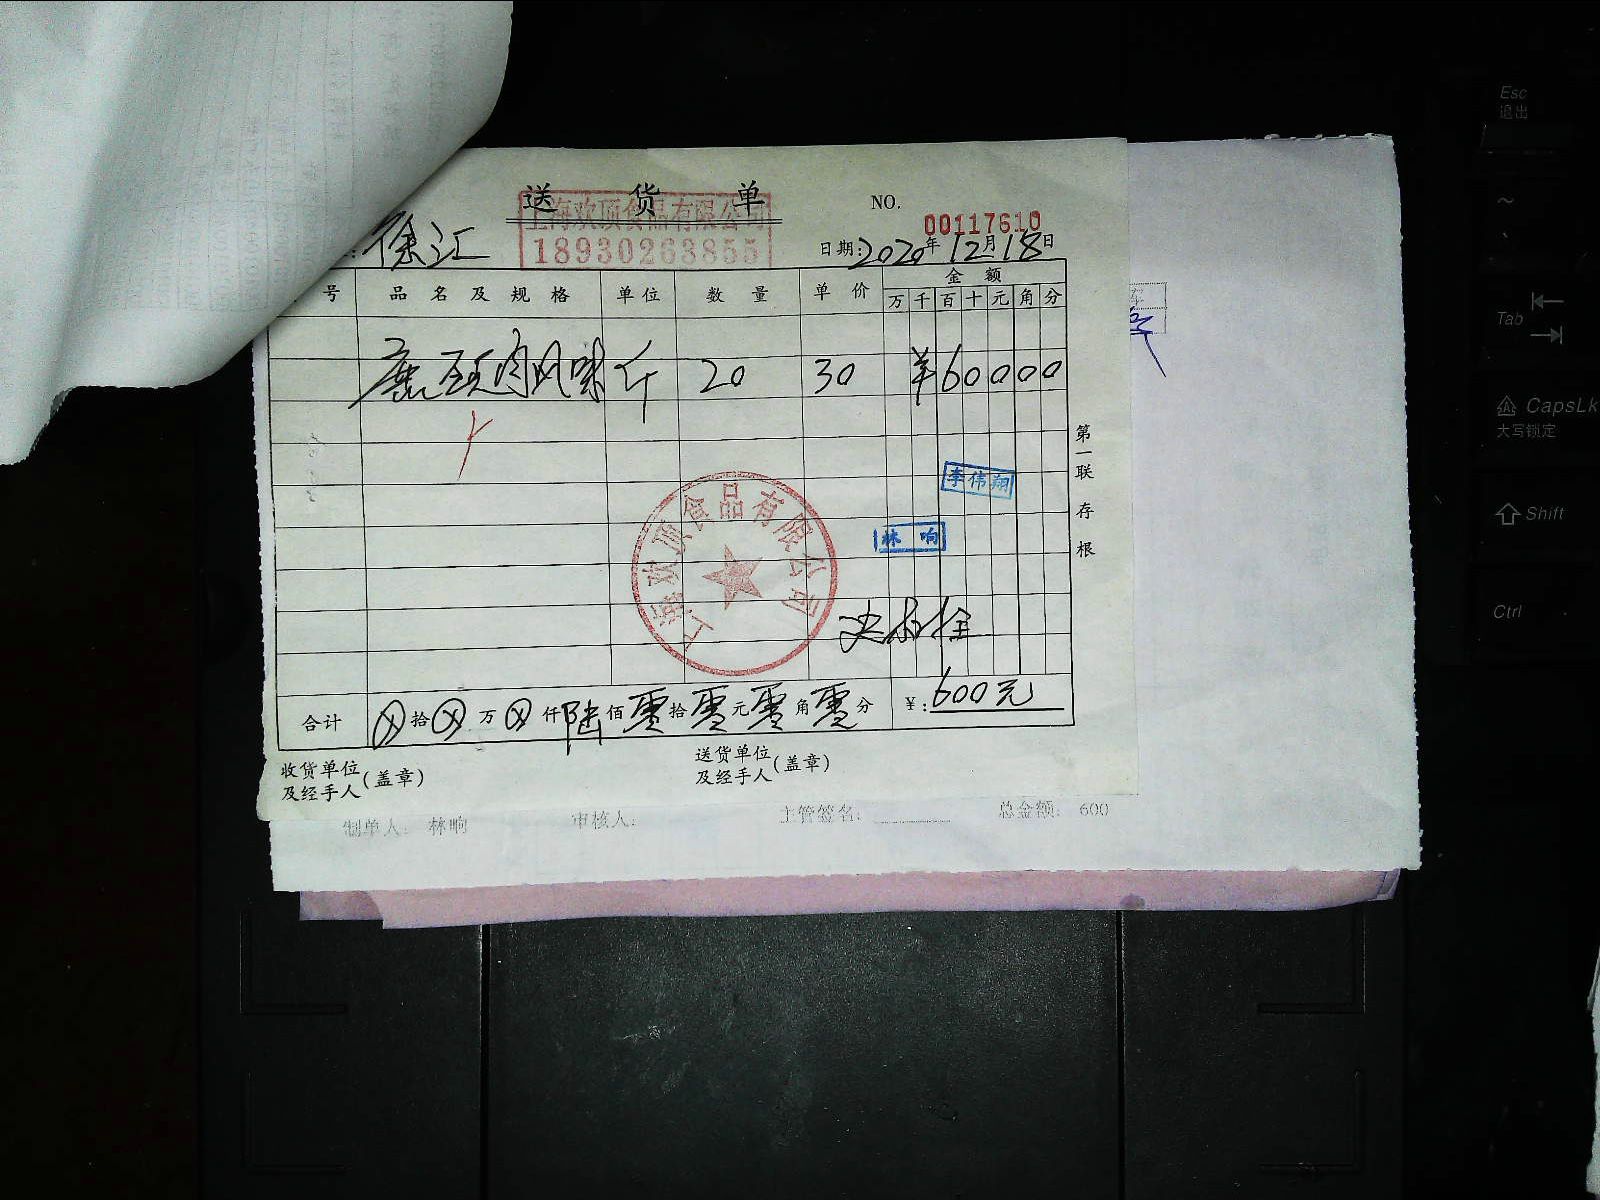 送 货 单
NO. 00117610
上海欢顶食品有限公司
18930263855
徐汇
日期: 2020年12月18日
号 品名及规格 单位 数量 单价 金额
万 千 百 十 元 角 分
肉风味 斤 20 30 ¥60000
第一联 存根
李伟翔
林响
上海欢顶食品有限公司
合计 ⊗拾⊗万⊗仟陆佰零拾零元零角零分 ¥: 600元
收货单位及经手人(盖章)
送货单位及经手人(盖章)
制单人: 林响 审核人: 主管签名: 总金额: 600
Esc
退出
~
Tab
CapsLk
大写锁定
Shift
Ctrl